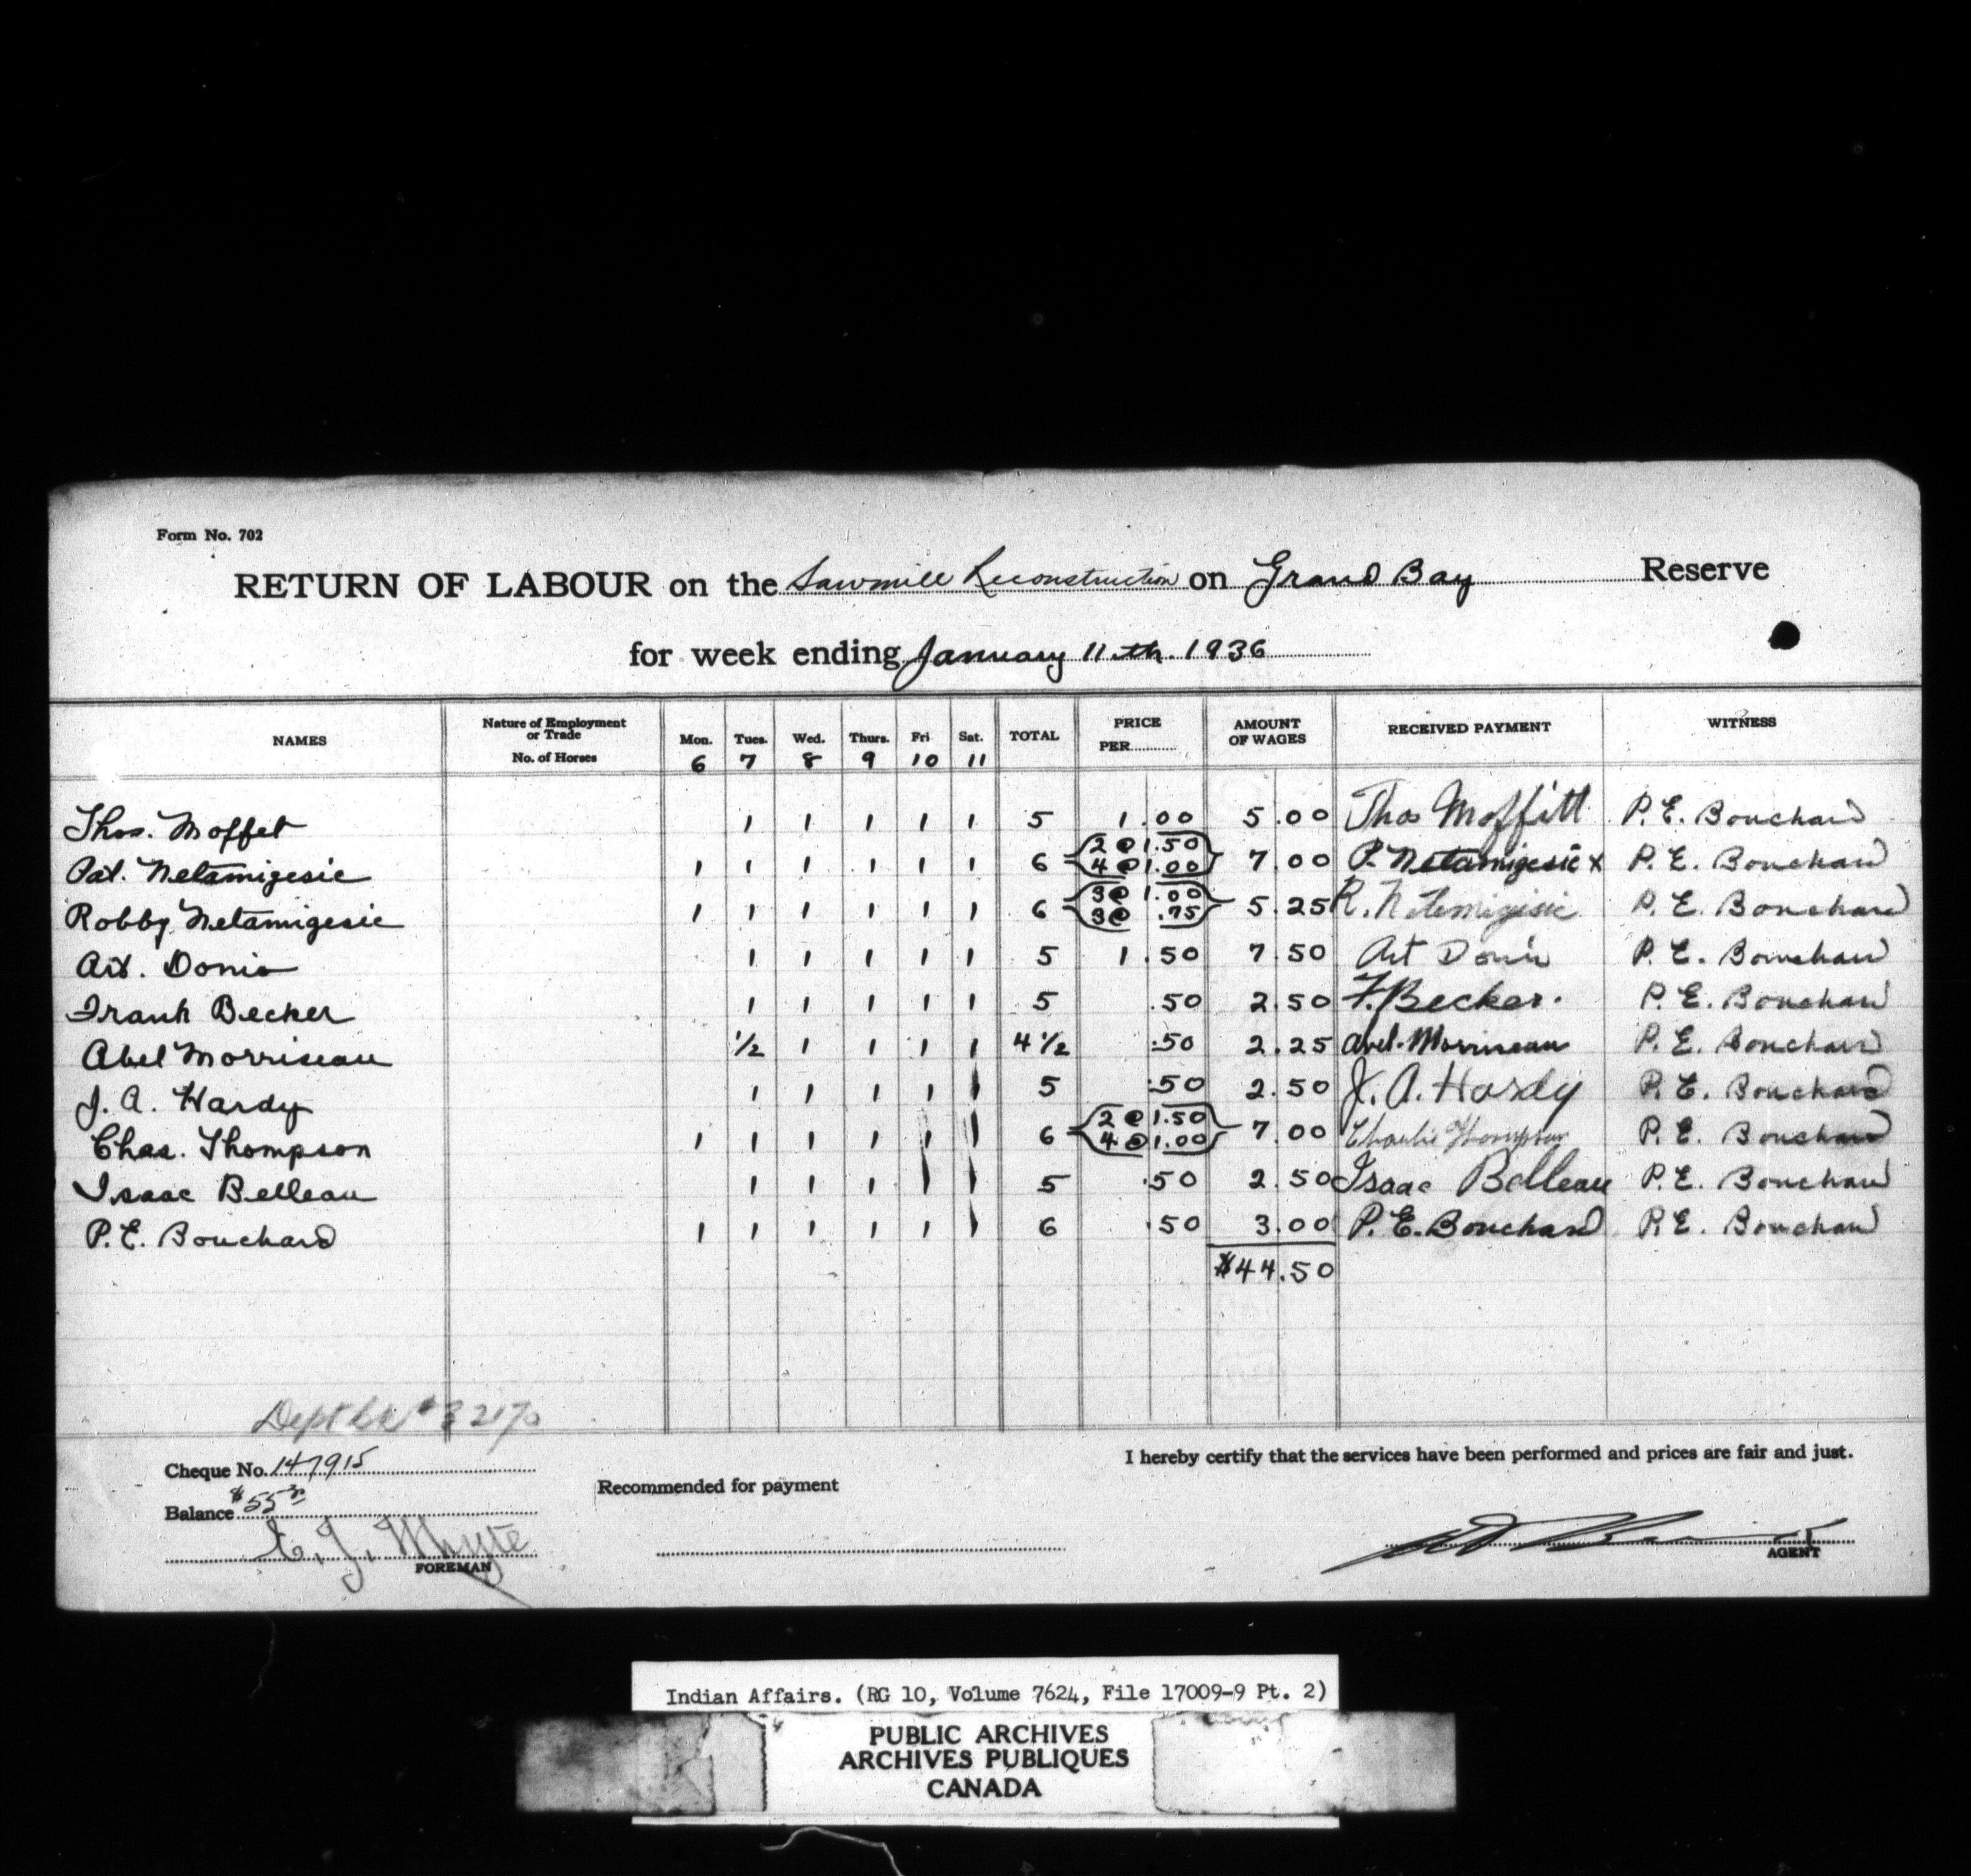 Form No. 702
RETURN OF LABOUR on the Sawmill Reconstruction on Grand Bay Reserve
for week ending January 11th. 1936
NAMES Nature of Employment or Trade No. of Horses Mon. 6 Tues. 7 Wed. 8 Thurs. 9 Fri 10 Sat. 11 TOTAL PRICE PER AMOUNT OF WAGES RECEIVED PAYMENT WITNESS
Thos. Moffet 1 1 1 1 1 5 1.00 5.00 Thos Moffitt P. E. Bouchard
Pat. Netamigesic 1 1 1 1 1 1 6 2 @ 1.50 4 @ 1.00 7.00 P. Netamigesic x P. E. Bouchard
Robby Netamigesic 1 1 1 1 1 1 6 3 @ 1.00 3 @ .75 5.25 R. Netemigisic P. E. Bouchard
Art. Donio 1 1 1 1 1 5 1.50 7.50 Art Donio P. E. Bouchard
Frank Becker 1 1 1 1 1 5 .50 2.50 F. Becker. P. E. Bouchard
Abel Morriseau 1/2 1 1 1 1 4 1/2 .50 2.25 Abel. Morriseau P. E. Bouchard
J. A. Hardy 1 1 1 1 1 5 .50 2.50 J. A. Hardy P. E. Bouchard
Chas. Thompson 1 1 1 1 1 1 6 2 @ 1.50 4 @ 1.00 7.00 Charlie Thompson P. E. Bouchard
Isaac Belleau 1 1 1 1 1 5 .50 2.50 Isaac Belleau P. E. Bouchard
P. E. Bouchard 1 1 1 1 1 1 6 .50 3.00 P. E. Bouchard P. E. Bouchard
$44.50
Cheque No. 147915
I hereby certify that the services have been performed and prices are fair and just.
Recommended for payment
Balance $55
E. J. Whyte
FOREMAN
AGENT
Indian Affairs. (RG 10, Volume 7624, File 17009-9 Pt. 2)
PUBLIC ARCHIVES
ARCHIVES PUBLIQUES
CANADA